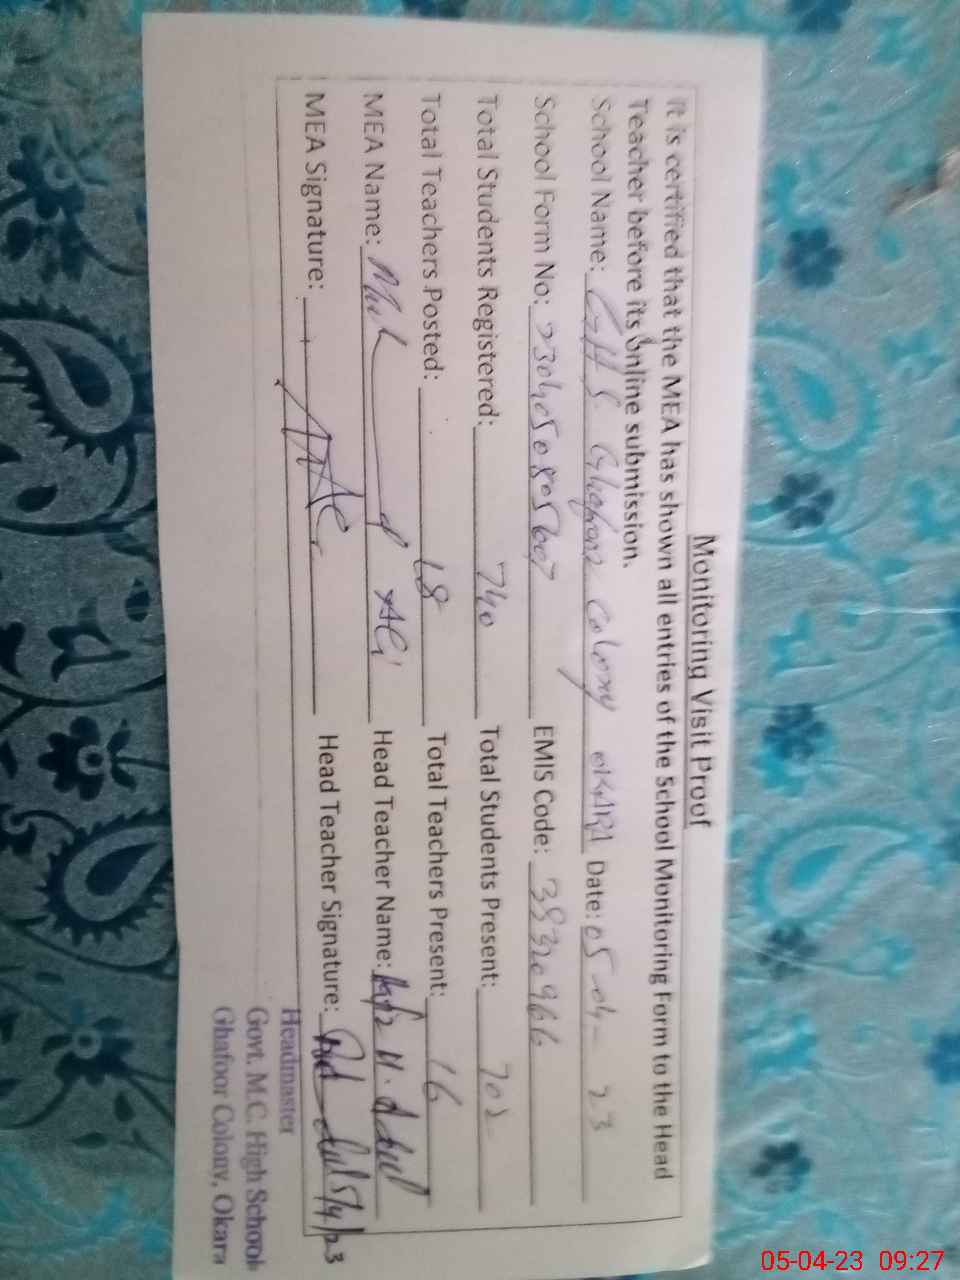 Monitoring Visit Proof
It is certified that the MEA has shown all entries of the School Monitoring Form to the Head
Teacher before its online submission.
School Name: GHS Ghafoor Colony OKARA Date: 05-04-23
School Form No: 2304050805607 EMIS Code: 39320966
Total Students Registered: 740 Total Students Present: 702
Total Teachers Posted: 18 Total Teachers Present: 16
MEA Name: Muh d Ali Head Teacher Name:
MEA Signature: Head Teacher Signature: 5/4/23
Headmaster
Govt. M.C. High School
Ghafoor Colony, Okara
05-04-23 09:27